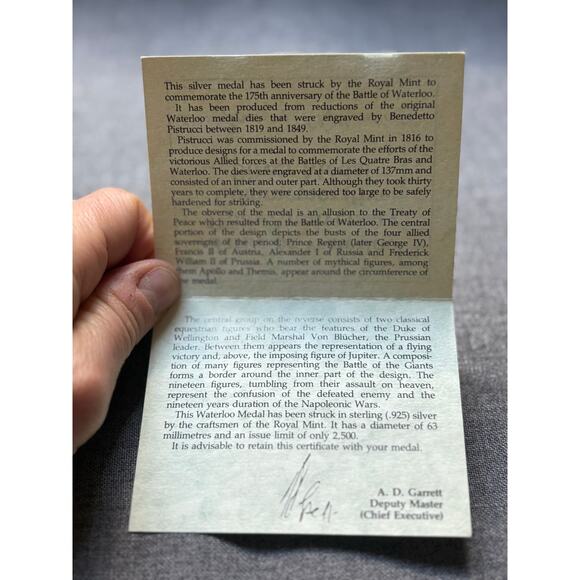 This silver medal has been struck by the Royal Mint to
commemorate the 175th anniversary of the Battle of Waterloo.
It has been produced from reductions of the original
Waterloo medal dies that were engraved by Benedetto
Pistrucci between 1819 and 1849.
Pistrucci was commissioned by the Royal Mint in 1816 to
produce designs for a medal to commemorate the efforts of the
victorious Allied forces at the Battles of Les Quatre Bras and
Waterloo. The dies were engraved at a diameter of 137mm and
consisted of an inner and outer part. Although they took thirty
years to complete, they were considered too large to be safely
hardened for striking.
The obverse of the medal is an allusion to the Treaty of
Peace which resulted from the Battle of Waterloo. The central
portion of the design depicts the busts of the four allied
sovereigns of the period; Prince Regent (later George IV),
Francis II of Austria, Alexander I of Russia and Frederick
William II of Prussia. A number of mythical figures, among
them Apollo and Themis, appear around the circumference of
the medal.
The central group on the reverse consists of two classical
equestrian figures who bear the features of the Duke of
Wellington and Field Marshal Von Blücher, the Prussian
leader. Between them appears the representation of a flying
victory and, above, the imposing figure of Jupiter. A composi-
tion of many figures representing the Battle of the Giants
forms a border around the inner part of the design. The
nineteen figures, tumbling from their assault on heaven,
represent the confusion of the defeated enemy and the
nineteen years duration of the Napoleonic Wars.
This Waterloo Medal has been struck in sterling (.925) silver
by the craftsmen of the Royal Mint. It has a diameter of 63
millimetres and an issue limit of only 2,500.
It is advisable to retain this certificate with your medal.
A. D. Garrett
Deputy Master
(Chief Executive)